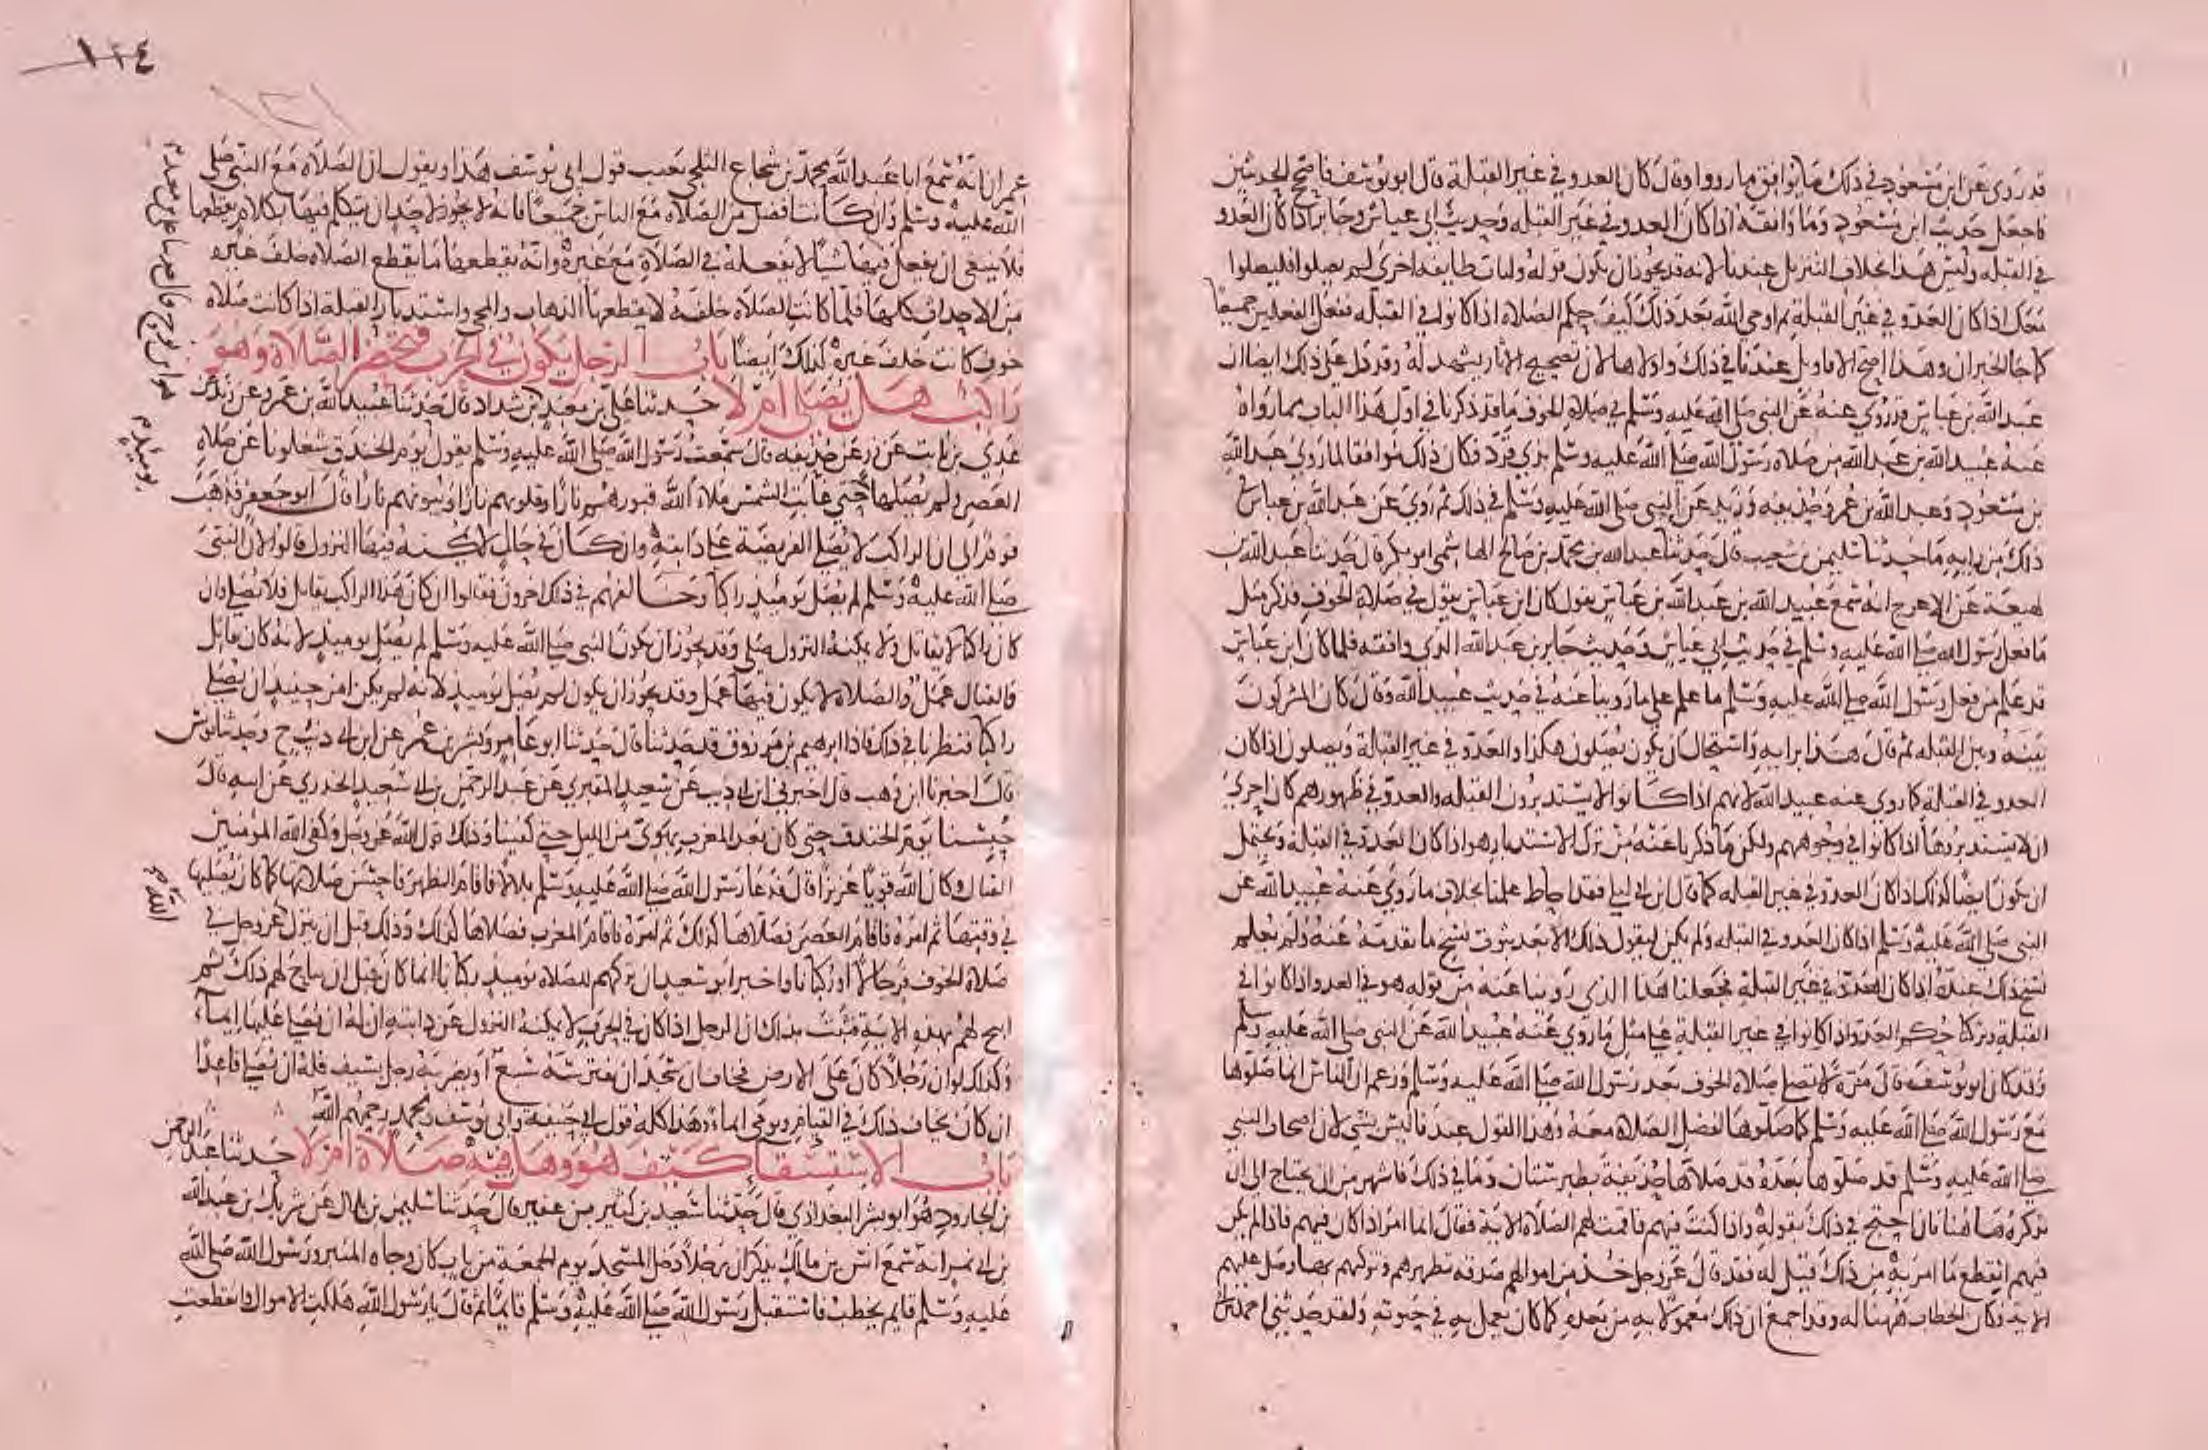 قد روي عن ابن مسعود في ذلك ما يوافق ما رووا وقال كان العدو في غير القبلة قال ابو يوسف فاصحح الحديثين
فاجعل حديث ابن مسعود وما وافقه اذا كان العدو في غير القبله وحديث ابي عياش وجابر اذا كان العدو
في القبله وليس هذا بخلاف التنزيل عندنا لانه قد يجوز ان يكون قوله ولتات طايفه اخري لم يصلوا فليصلوا
معك اذا كان العدو في غير القبلة ثم اوحي الله بعد ذلك كيف حكم الصلاة اذا كانوا في القبله ففعل الفعلين جميعا
كما جا الخبران وهذا اصح الاقاويل عندنا في ذلك واولاها لان تصحيح الاثار يشهد له وقد دل علي ذلك ايضا ان
عبد الله بن عباس قد روي عنه عن النبي صلي الله عليه وسلم في صلاة الخوف ما قد ذكرنا في اول هذا الباب مما رواه
عنه عبيد الله بن عبد الله من صلاه رسول الله صلي الله عليه وسلم بذي قرد فكان ذلك موافقا لما روي عبد الله
بن مسعود وعبد الله بن عمر وحذيفه وزيد عن النبي صلي الله عليه وسلم في ذلك ثم روي عن عبد الله بن عباس في
ذلك من رايه ما حدثنا سليمن بن شعيب قال حدثنا عبد الله بن محمد بن صالح الهاشمي ابو بكر قال حدثنا عبد الله بن
لهيعة عن الاعرج انه سمع عبيد الله بن عبد الله بن عباس يقول كان ابن عباس يقول في صلاة الخوف فذكر مثل
ما فعل رسول الله صلي الله عليه وسلم في حديث ابي عياش وحديث جابر بن عبد الله الذي وافقه فلما كان ابن عباس
قد علم من فعل رسول الله صلي الله عليه وسلم ما علم علي ما روينا عنه في حديث عبيد الله وقال كان المشركون
بينه وبين القبله ثم قال هذا برايه واستحال ان يكون يصلون هكذا والعدو في غير القبلة ويصلون اذا كان
العدو في القبلة كما روي عنه عبيد الله لانهم اذا كانوا لا يستدبرون القبله والعدو في ظهورهم كان احري
ان لا يستدبروها اذا كانوا في وجوههم ولكن ما ذكرنا عنه من ترك الاستدبار هو اذا كان العدو في القبلة ويحتمل
ان يكون ايضا كذلك اذا كان العدو في غير القبله كما قال ابن ابي ليلي فقد احاط علمنا بخلاف ما روي عنه عبيد الله عن
النبي صلي الله عليه وسلم اذا كان العدو في القبله ولم يكن ليقول ذلك الا بعد ثبوت نسخ ما تقدمه عنه ولم يعلم
نسخ ذلك عنده اذا كان العدو في غير القبلة فجعلنا هذا الذي روينا عنه من قوله هو في العدو اذا كانوا في
القبلة وتركنا حكم العدو اذا كانوا في غير القبلة علي مثل ما روي عنه عبيد الله عن النبي صلي الله عليه وسلم
وقد كان ابو يوسف قال مرة لا تصلي صلاة الخوف بعد رسول الله صلي الله عليه وسلم وزعم ان الناس انما صلوها
مع رسول الله صلي الله عليه وسلم كما صلوها لفضل الصلاه معه وهذا القول عندنا ليس بشي لان اصحاب النبي
صلي الله عليه وسلم قد صلوها بعده قد صلاها حذيفة بطبرستان وما في ذلك فاشهر من ان يحتاج الي ان
نذكره هاهنا فان احتج في ذلك بقوله واذا كنت فيهم فاقمت لهم الصلاة الاية فقال انما امر اذا كان فيهم فاذا لم يكن
فيهم انقطع ما امر به من ذلك قيل له فقد قال عز وجل خذ من اموالهم صدقه تطهرهم وتزكيهم بها وصل عليهم
الاية فكان الخطاب ههنا له وقد اجمع ان ذلك معمولا به من بعده كما كان يعمل به في حيوته ولقد حدثني احمد بن ابي
١٢٤
١٢١
عمران انه سمع ابا عبد الله محمد بن شجاع الثلجي يعيب قول ابي يوسف هذا ويقول ان الصلاة مع النبي صلي
الله عليه وسلم وان كانت افضل من الصلاه مع الناس جميعا فانه لا يجوز لاحد ان يتكلم فيها بكلام يقطعها
فلا ينبغي ان يفعل فيها شيا لا يفعله في الصلاة مع غيره وانه يقطعها ما يقطع الصلاه خلف غيره
من الاحداث كلها فلما كانت الصلاه خلفه لا يقطعها الذهاب والمجي واستدبار القبلة اذا كانت صلاه
خوف كانت خلف غيره كذلك ايضا باب الرجل يكون في الحرب فتحضر الصلاة وهو
راكب هل يصلي ام لا حدثنا علي بن معبد بن شداد قال حدثنا عبيد الله بن عمرو عن زيد عن
عدي بن ثابت عن زر عن حذيفه قال سمعت رسول الله صلي الله عليه وسلم يقول يوم الخندق شغلونا عن صلاة
العصر ولم يصلها حتي غابت الشمس ملا الله قبورهم نارا وقلوبهم نارا وبيوتهم نارا قال ابو جعفر فذهب
قوم الي ان الراكب لا يصلي الفريضة علي دابته وان كان في حال لا يمكنه فيها النزول قالوا لان النبي
صلي الله عليه وسلم لم يصل يومئذ راكبا وخالفهم في ذلك اخرون فقالوا ان كان هذا الراكب يقاتل فلا يصلي وان
كان راكبا لا يقاتل ولا يمكنه النزول صلي وقد يجوز ان يكون النبي صلي الله عليه وسلم لم يصل يوميذ لانه كان قاتل
فالقتال عمل والصلاه لا يكون فيها عمل وقد يجوز ان يكون لم يصل يوميذ لانه لم يكن امر حينيذ ان يصلي
راكبا فنظرنا في ذلك فاذا ابرهيم بن مرزوق قد حدثنا قال حدثنا ابو عامر وبشر بن عمر عن ابن ابي ذيب ح وحدثنا يونس
قال اخبرنا ابن وهب قال اخبرني ابن ابي ذيب عن سعيد المقبري عن عبد الرحمن بن ابي سعيد الخدري عن ابيه قال
حبسنا يوم الخندق حتي كان بعد المغرب بهوي من الليل حتي كفينا وذلك قول الله عز وجل وكفي الله المؤمنين
القتال وكان الله قويا عزيزا قال فدعا رسول الله صلي الله عليه وسلم بلالا فاقام الظهر فاحسن صلاتها كما كان يصليها
في وقتها ثم امره فاقام العصر فصلاها كذلك ثم امره فاقام المغرب فصلاها كذلك وذلك قبل ان ينزل عز وجل في
صلاة الخوف فرجالا او ركبانا فاخبر ابو سعيد ان تركهم للصلاه يوميذ ركبانا انما كان قبل ان يباح لهم ذلك ثم
ابيح لهم بهذه الاية فثبت بذلك ان الرجل اذا كان في الحرب لا يمكنه النزول عن دابته ان له ان يصلي عليها ايماء
وكذلك لو ان رجلا كان علي الارض فخاف ان سجد ان يفترسه سبع او يضربه رجل بسيف فله ان يصلي قاعدا
ان كان يخاف ذلك في القيام ويومي ايماء وهذا كله قول ابي حنيفة وابي يوسف ومحمد رحمهم الله
باب الاستسقا كيف هو وهل فيه صلاة ام لا حدثنا عبد الرحمن
بن الجارود هو ابو بشر البغداذي قال حدثنا سعيد بن كثير بن عفير قال حدثنا سليمن بن بلال عن شريك بن عبد الله
بن ابي نمر انه سمع انس بن مالك يذكر ان رجلا دخل المسجد يوم الجمعة من باب كان وجاه المنبر ورسول الله صلي الله
عليه وسلم قايم يخطب فاستقبل رسول الله صلي الله عليه وسلم قايما ثم قال يا رسول الله هلكت الاموال وانقطعت
يوميذ
الله